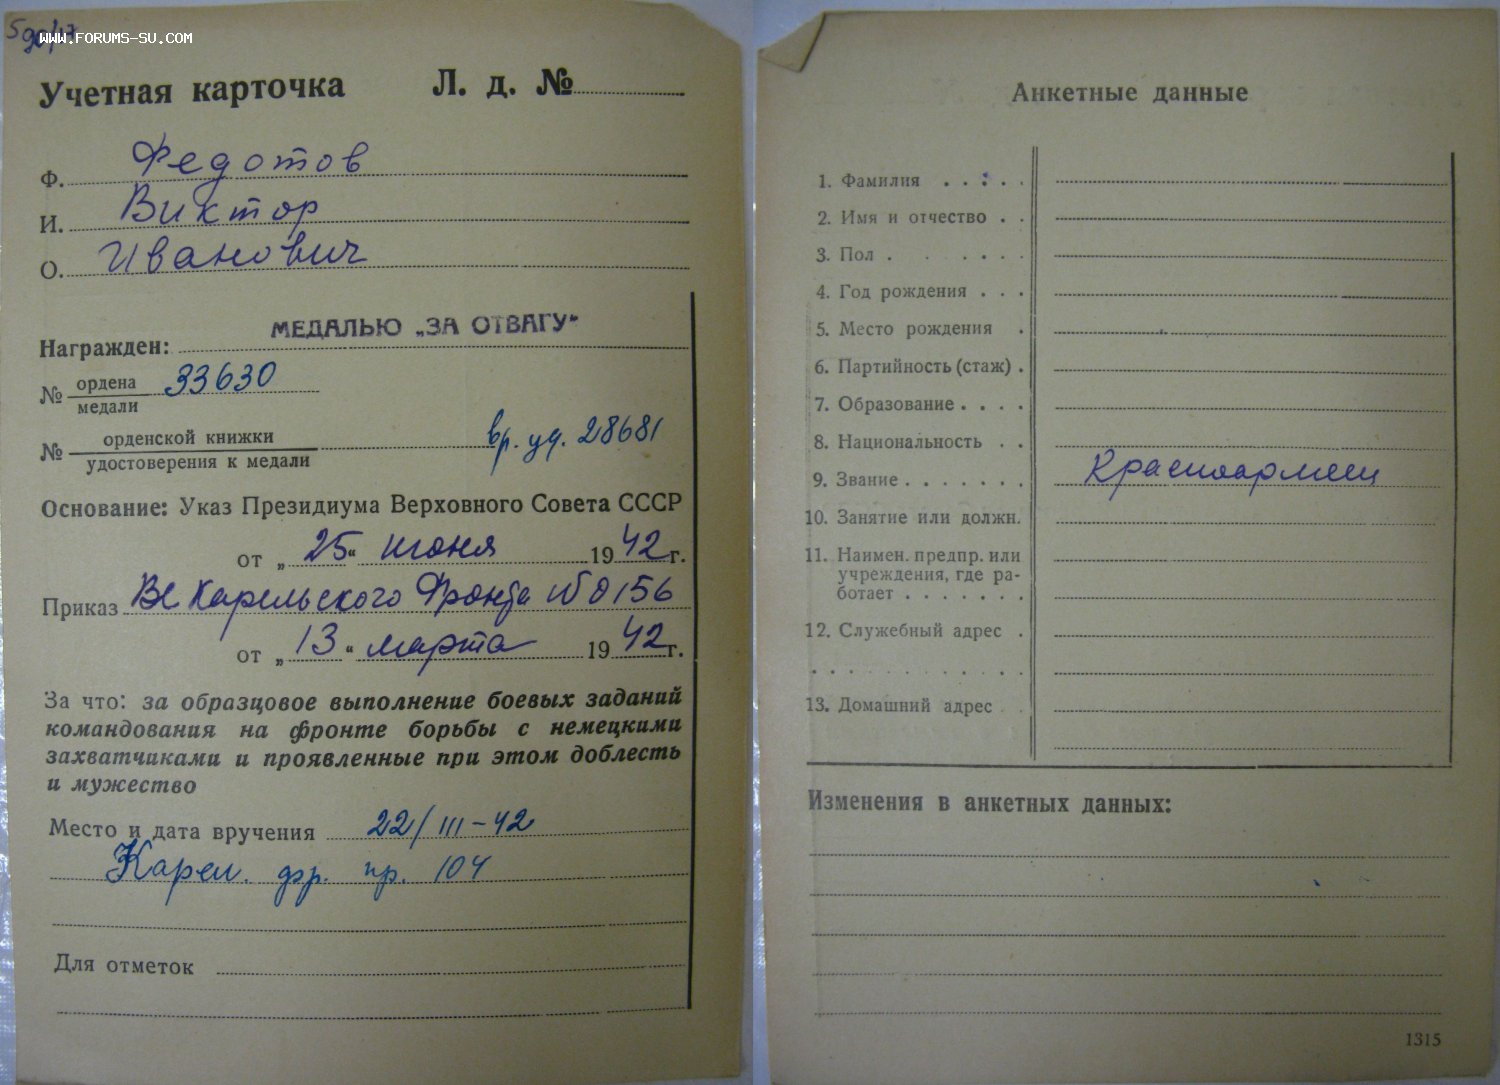 www.forums-su.com
Учетная карточка Л. д. №
Ф. Федотов
И. Виктор
О. Иванович
Награжден: МЕДАЛЬЮ „ЗА ОТВАГУ"
№ ордена медали 33630
№ орденской книжки удостоверения к медали вр. уд. 28681
Основание: Указ Президиума Верховного Совета СССР
от „25" июня 1942г.
Приказ ВС Карельского Фронта № 0156
от „13" марта 1942г.
За что: за образцовое выполнение боевых заданий
командования на фронте борьбы с немецкими
захватчиками и проявленные при этом доблесть
и мужество
Место и дата вручения 22/III-42
Карел. фр. пр. 104
Для отметок
Анкетные данные
1. Фамилия . . . . .
2. Имя и отчество . .
3. Пол . . . . . .
4. Год рождения . . .
5. Место рождения .
6. Партийность (стаж) .
7. Образование . . . .
8. Национальность . .
9. Звание . . . . . . . Красноармеец
10. Занятие или должн.
11. Наимен. предпр. или
учреждения, где ра-
ботает . . . . . . .
12. Служебный адрес .
13. Домашний адрес
Изменения в анкетных данных:
1315